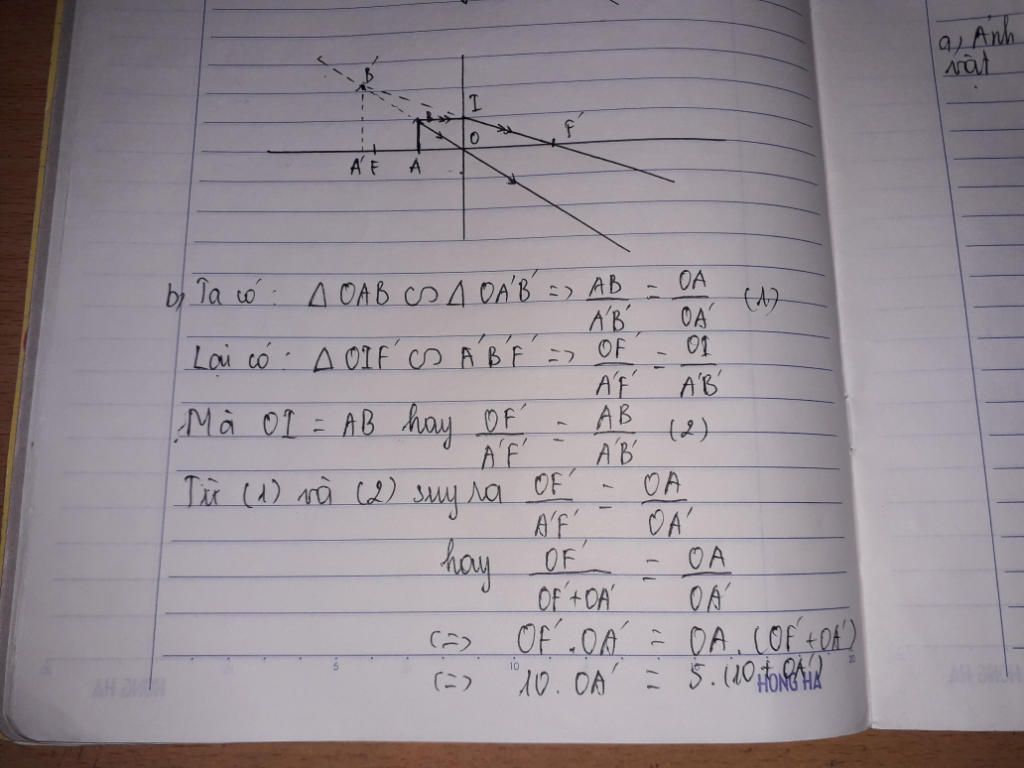 a, Ảnh
vật
B'
B I
O F'
A' F A
b, Ta có: Δ OAB ∽ Δ OA'B' => AB/A'B' = OA/OA' (1)
Lại có: Δ OIF' ∽ A'B'F' => OF'/A'F' = OI/A'B'
Mà OI = AB hay OF'/A'F' = AB/A'B' (2)
Từ (1) và (2) suy ra OF'/A'F' = OA/OA'
hay OF'/OF'+OA' = OA/OA'
<=> OF'.OA' = OA.(OF'+OA')
<=> 10.OA' = 5.(10+OA')
5 10 20
HONG HA